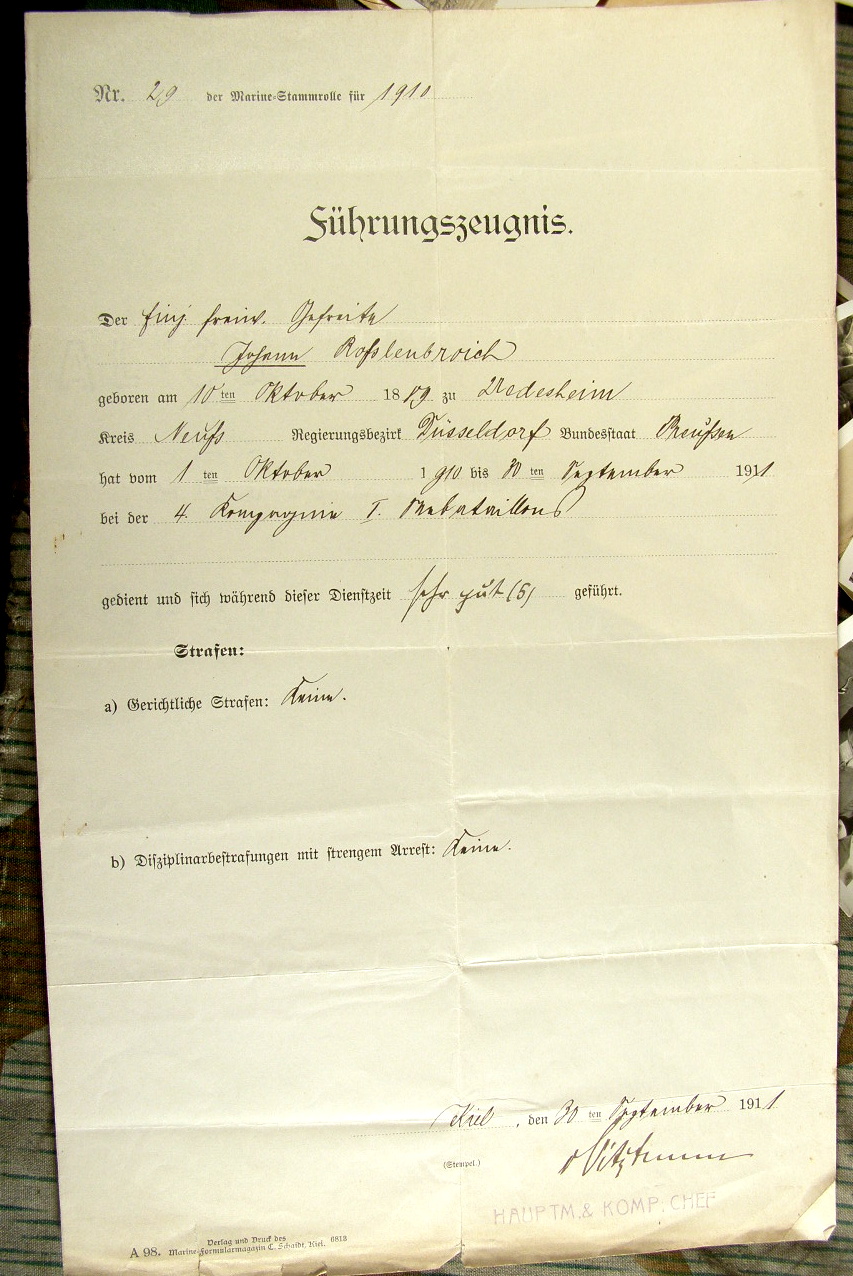 Nr. 29 der Marine-Stammrolle für 1910
Führungszeugnis.
Der Einj. freiw. Gefreite
Johann Roßlenbroich
geboren am 10ten Oktober 1889 zu Uedesheim
Kreis Neuß Regierungsbezirk Düsseldorf Bundesstaat Preußen
hat vom 1ten Oktober 1910 bis 30ten September 1911
bei der 4. Kompagnie I. Seebataillons
gedient und sich während dieser Dienstzeit sehr gut (5) geführt.
Strafen:
a) Gerichtliche Strafen: Keine.
b) Disziplinarbestrafungen mit strengem Arrest: Keine.
Kiel, den 30ten September 1911
(Stempel.)
HAUPTM. & KOMP. CHEF
A 98. Verlag und Druck des
Marine-Formularmagazin C. Schaidt, Kiel. 6813